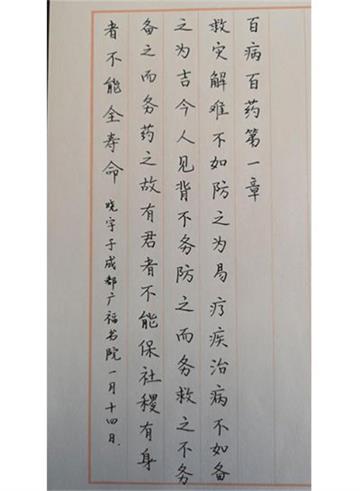 百病百药第一章
救灾解难不如防之为易疗疾治病不如备
之为吉今人见背不务防之而务救之不务
备之而务药之故有君者不能保社稷有身
者不能全寿命 晓宇于成都广福书院一月十四日.